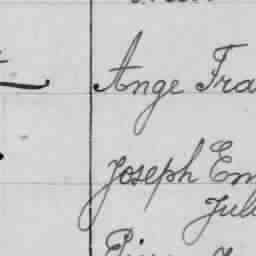 Ange Fra
Joseph Em
Jul